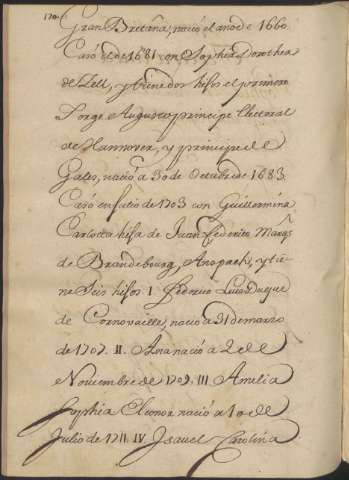 170
Gran Bretaña, nació el año de 1660
Casó el de 1681 con Sophia Dorothea
de Zell, y tiene dos hijos el primero
Jorge Augusto principe Electoral
de Hannover, y principe de
Gales, nació a 30 de Octubre de 1683.
Casó en Julio de 1703 con Guillermina
Carlotta hija de Juan Federico Marqs
de Brandebourg, Anspach, y tie
ne Seis hijos I. Federico Luis Duque
de Cornovaille, nació a 31 de marzo
de 1707. II. Ana nació a 2 de
Noviembre de 1709. III Amelia
Sophia Eleonor nació a 10 de
Julio de 1711. IV Isavel Carolina